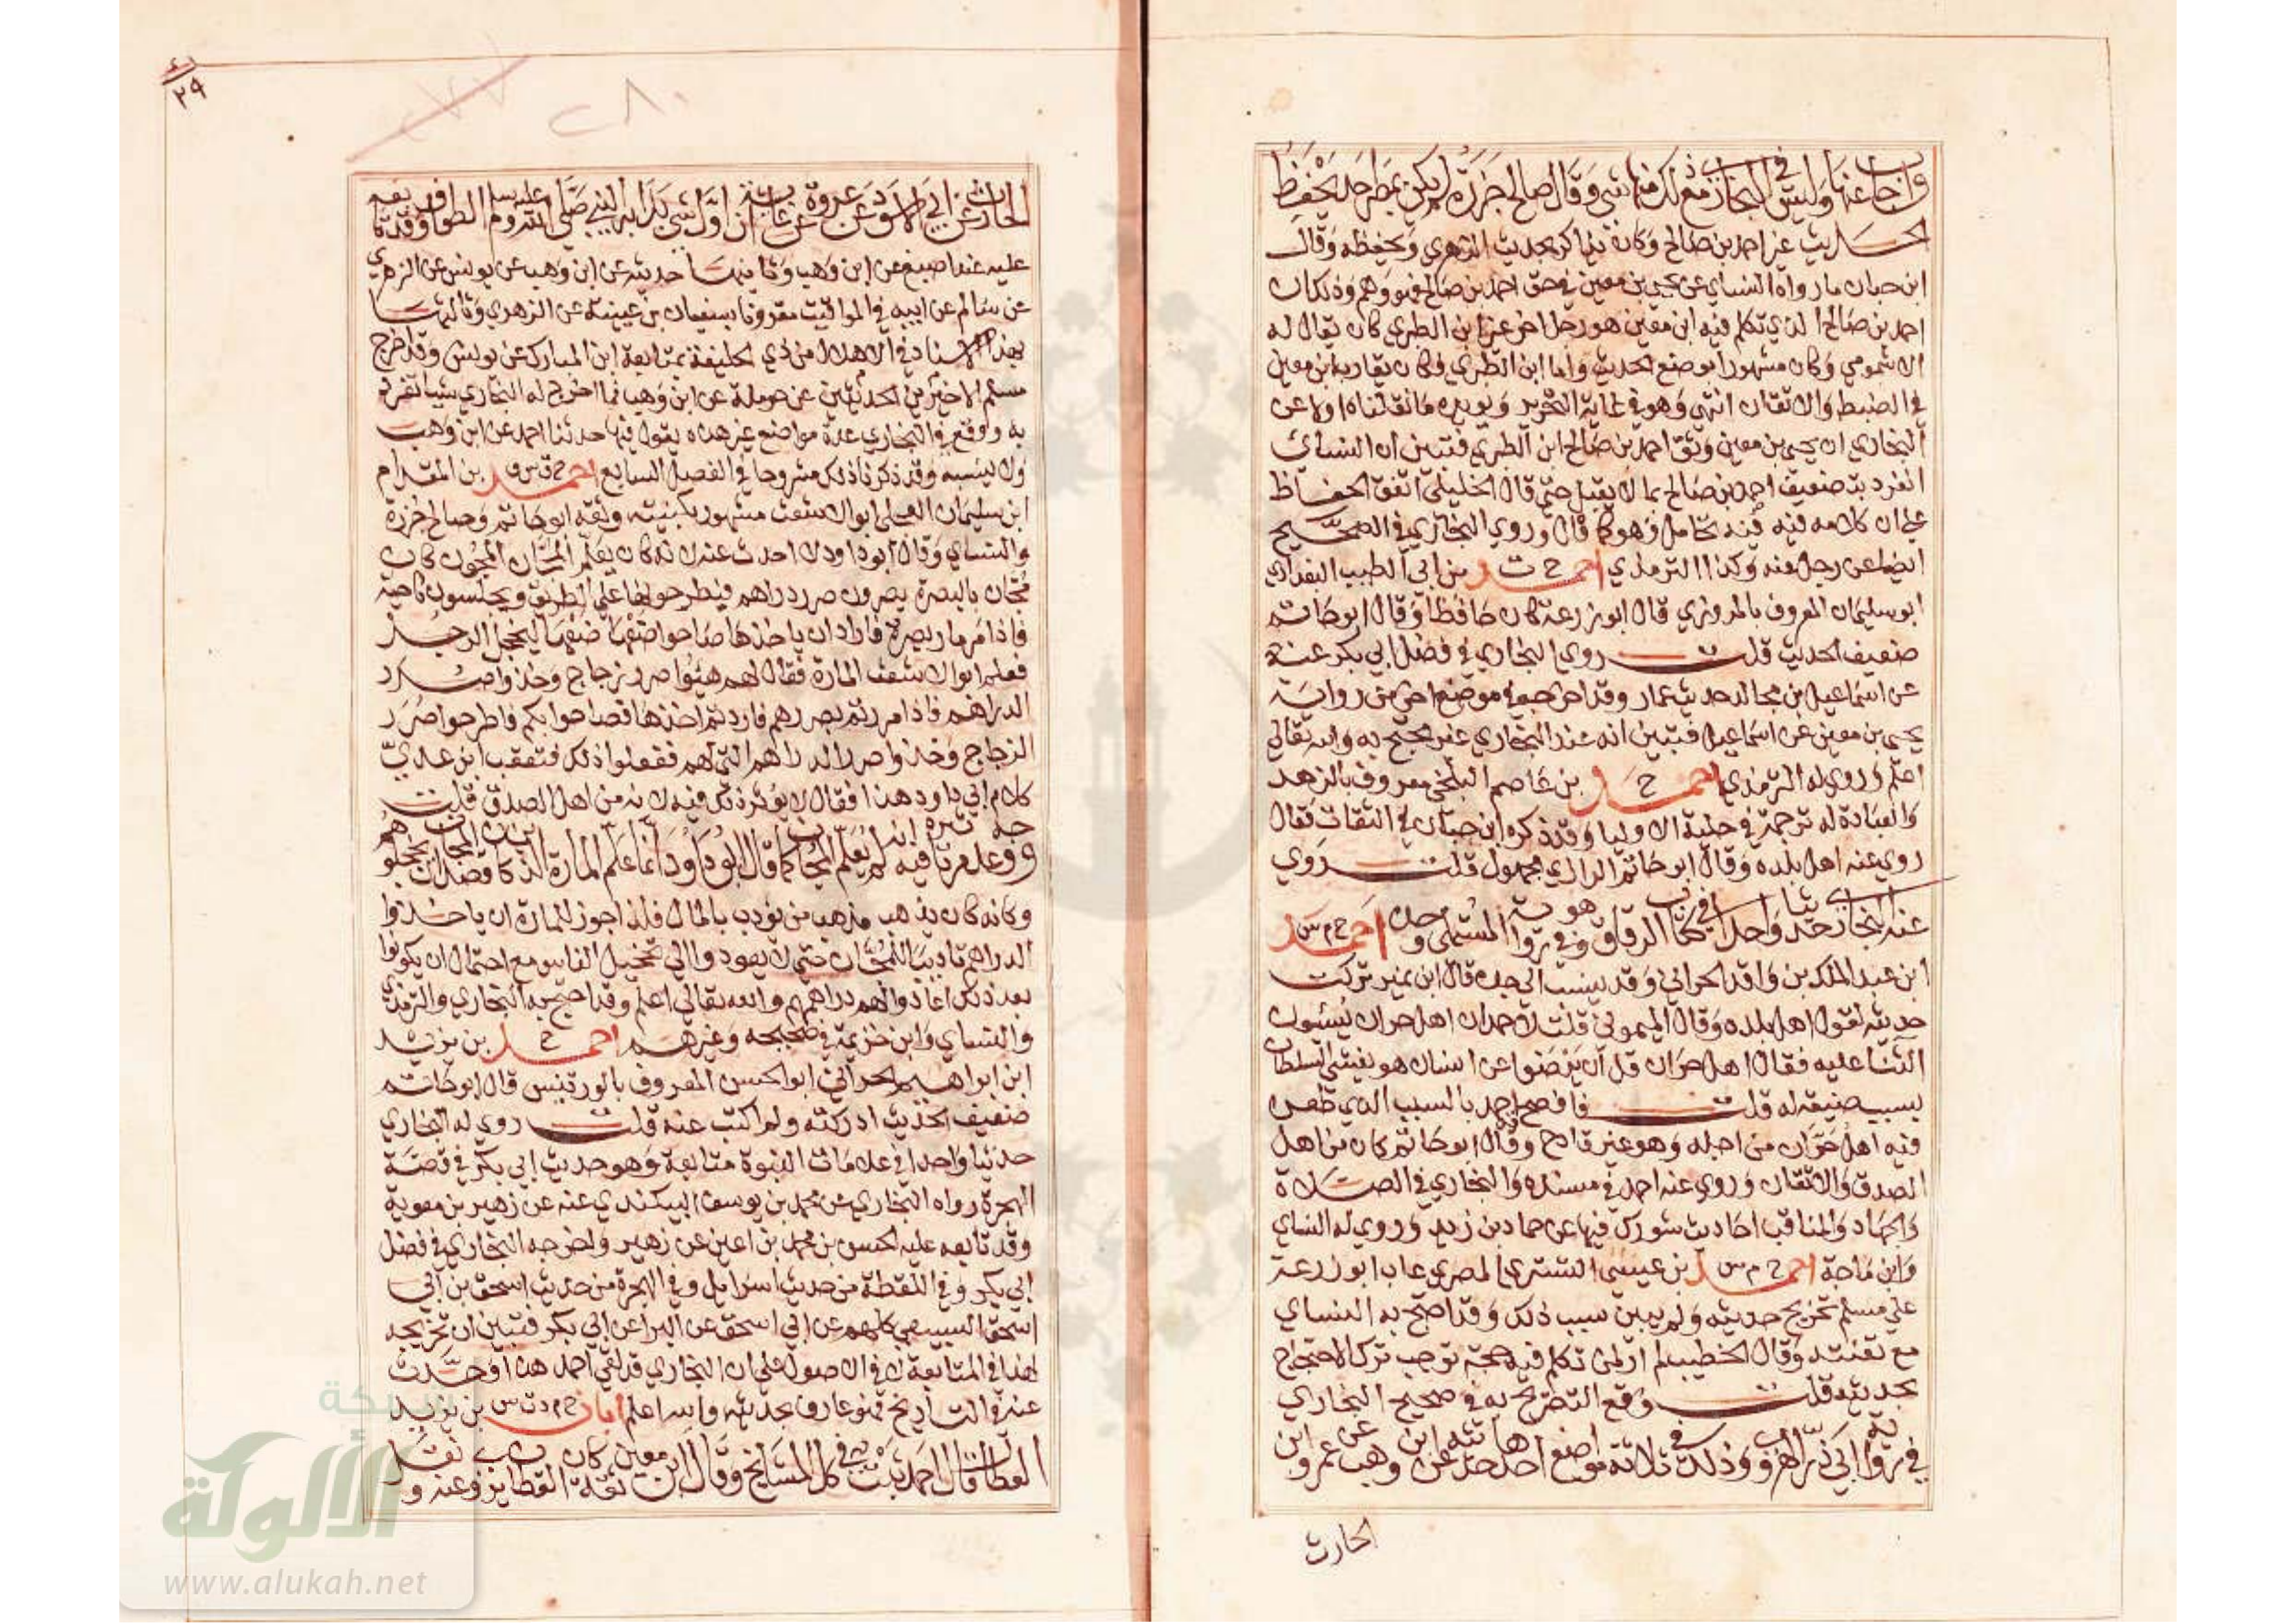 واجاب عنها وليس في البخاري مع ذلك منها شي وقال صالح جزرة لم يكن بمصر احد يحفظ
الحديث غير احمد بن صالح وكان يذاكر بحديث الزهري ويحفظه وقال
ابن حبان ما رواه النساي عن يحيي بن معين في حق احمد بن صالح فهو وهم وذلك ان
احمد بن صالح الذي تكلم فيه ابن معين هو رجل اخر غير ابن الطبري كان يقال له
الاشمومي وكان مشهورا بوضع الحديث واما ابن الطبري فكان يقارب ابن معين
في الضبط والاتقان انتهي وهو في غاية التحرير ويويده ما نقلناه اولا عن
البخاري ان يحيي بن معين وثق احمد بن صالح ابن الطبري فتبين ان النساي
انفرد بتضعيف احمد بن صالح بما لا يقبل حتي قال الخليلي اتفق الحفاظ
علي ان كلامه فيه فيه تحامل وهو كما قال وروي البخاري في الصحيح
ايضا عن رجل عنه وكذا الترمذي احمد خ ت بن ابي الطيب البغدادي
ابو سليمان المعروف بالمروزي قال ابو زرعة كان حافظا وقال ابو حاتم
ضعيف الحديث قلت روي البخاري في فضل ابي بكر عنه
عن اسماعيل بن مجالد حديث عمار وقد اخرجه في موضع اخر من رواية
يحيي بن معين عن اسماعيل فتبين انه عند البخاري غير محتج به والله تعالي
اعلم وروي له الترمذي احمد خ بن عاصم البلخي معروف بالزهد
والعبادة له ترجمة في حلية الاوليا وقد ذكره ابن حبان في الثقات فقال
روي عنه اهل بلده وقال ابو حاتم الرازي مجهول قلت روي
عنه البخاري حديثا واحدا في كتاب الرقاق وهو في رواية المستملي وحده احمد خ م س
ابن عبد الملك بن واقد الحراني وقد ينسب الي جده قال ابن نمير تركت
حديثه لقول اهل بلده وقال الميموني قلت لاحمد ان اهل حران يسئون
الثنا عليه فقال اهل حران قل ان يرضوا عن انسان هو يغشي السلطان
بسبب ضيعة له قلت فافصح احمد بالسبب الذي طعن
فيه اهل حران من اجله وهو غير قادح وقد قال ابو حاتم كان من اهل
الصدق والاتقان وروي عنه احمد في مسنده والبخاري في الصلاة
والجهاد والمناقب احاديث شورك فيها عن حماد بن زيد وروي له النساي
وابن ماجة احمد خ م س بن عيسي التستري المصري عاب ابو زرعة
علي مسلم تخريج حديثه ولم يبين سبب ذلك وقد احتج به النساي
مع تعنته وقال الخطيب لم ار لمن تكلم فيه حجة توجب ترك الاحتجاج
بحديثه قلت وقع التصريح به في صحيح البخاري
في رواية ابي ذر الهروي وذلك في ثلاثة مواضع احدها حديثه عن ابن وهب عن عمرو ابن
الحارث
الحارث عن ابي الاسود عن عروة عن عايشة ان اول شي بدا به النبي صلي الله عليه وسلم الطواف وقد تابعه
عليه عنده اصبغ عن ابن وهب وثانيها حديثه عن ابن وهب عن يونس عن الزهري
عن سالم عن ابيه في المواقيت مقرونا بسفيان بن عيينة عن الزهري وثالثها
بهذا الاسناد في الاهلال من ذي الحليفة بمتابعة ابن المبارك عن يونس وقد اخرج
مسلم الاخيرين الحديثين عن حرملة عن ابن وهب فما اخرج له البخاري شيا تفرد
به ووقع في البخاري عدة مواضع غير هذه يقول فيها حدثنا احمد عن ابن وهب
ولا ينسبه وقد ذكرنا ذلك مشروحا في الفصل السابع احمد خ ت س ق بن المقدام
ابن سليمان العجلي ابو الاشعث مشهور بكنيته وثقه ابو حاتم وصالح جزرة
والنساي وقال ابو داود لا احدث عنه لانه كان يعلم المجان المجون كان
مجان بالبصرة يصرون صرر دراهم فيطرحونها علي الطريق ويجلسون ناحية
فاذا مر مار بصرة فاراد ان ياخذها صاحوا ضعها ضعها ليخجل الرجل
فعلم ابو الاشعث المارة فقال لهم هيئوا صرر زجاج وخذوا صرر
الدراهم فاذا مررتم بصررهم فاردتم اخذها فصاحوا بكم فاطرحوا صرر
الزجاج وخذوا صرر الدراهم التي لهم ففعلوا ذلك فتعقب ابن عدي
كلام ابي داود هذا فقال لا يوثر ذلك فيه لانه من اهل الصدق قلت
ووجه عدم تاثيره فيه انه لم يعلم المجان كما قال ابو داود وانما علم المارة الذين كان قصد المجان ان يخجلوهم
وكانه كان يذهب مذهب من يودب بالمال فلهذا جوز للمارة ان ياخذوا
الدراهم تاديبا للمجان حتي لا يعودوا الي تخجيل الناس مع احتمال ان يكونوا
بعد ذلك اعادوا لهم دراهمهم والله تعالي اعلم وقد احتج به البخاري والترمذي
والنساي وابن خزيمة في صحيحه وغيرهم احمد خ بن يزيد
ابن ابراهيم الحراني ابو الحسن المعروف بالورتنيس قال ابو حاتم
ضعيف الحديث ادركته ولم اكتب عنه قلت روي له البخاري
حديثا واحدا في علامات النبوة متابعة وهو حديث ابي بكر في قصة
الهجرة رواه البخاري عن محمد بن يوسف البيكندي عنه عن زهير بن معوية
وقد تابعه عليه الحسن بن محمد بن اعين عن زهير واخرجه البخاري في فضل
ابي بكر وفي اللقطة من حديث اسرايل وفي الهجرة من حديث اسحق بن ابي
اسحق السبيعي كلهم عن ابي اسحق عن البرا عن ابي بكر فتبين ان تخريجه
لهذا في المتابعة لا في الاصول علي ان البخاري قد لقي احمد هذا وحدث
عنه في التاريخ فهو عارف بحديثه والله اعلم ابان خ م د ت س بن يزيد
العطار قال احمد ثبت في كل المشايخ وقال ابن معين ثقة كان القطان يروي عنه و